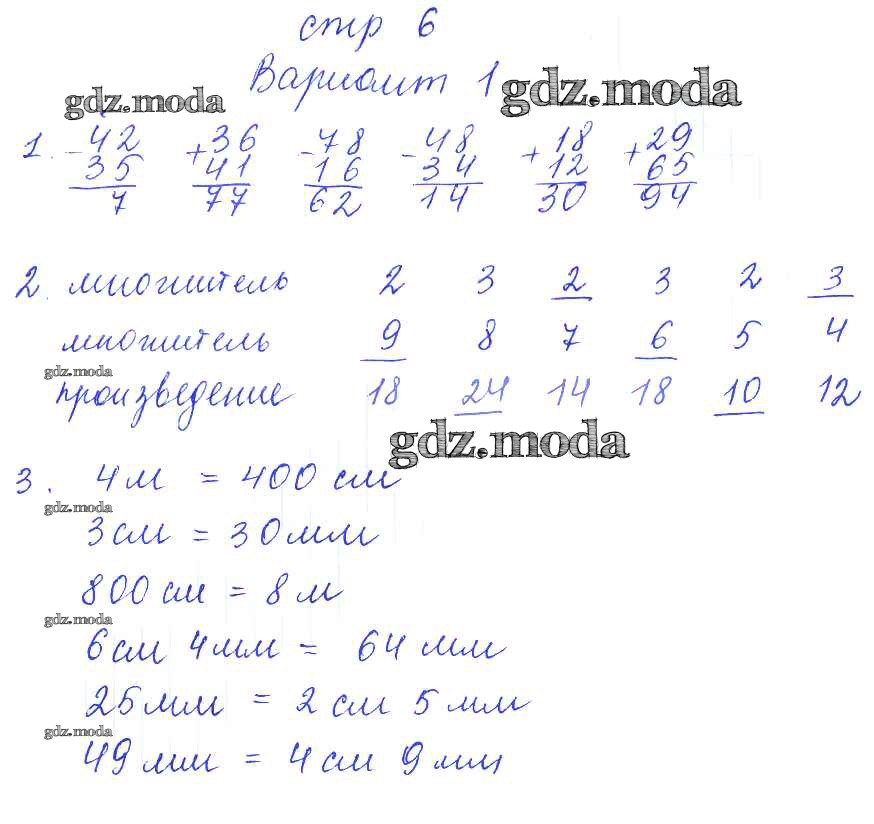 стр 6
Вариант 1
gdz.moda gdz.moda
1. -42 +36 -78 -48 +18 +29
35 41 16 34 12 65
7 77 62 14 30 94
2. множитель 2 3 2 3 2 3
множитель 9 8 7 6 5 4
gdz.moda
произведение 18 24 14 18 10 12
gdz.moda
3. 4м = 400 см
gdz.moda
3см = 30мм
800 см = 8м
gdz.moda
6см 4мм = 64 мм
25мм = 2 см 5 мм
gdz.moda
49мм = 4 см 9 мм